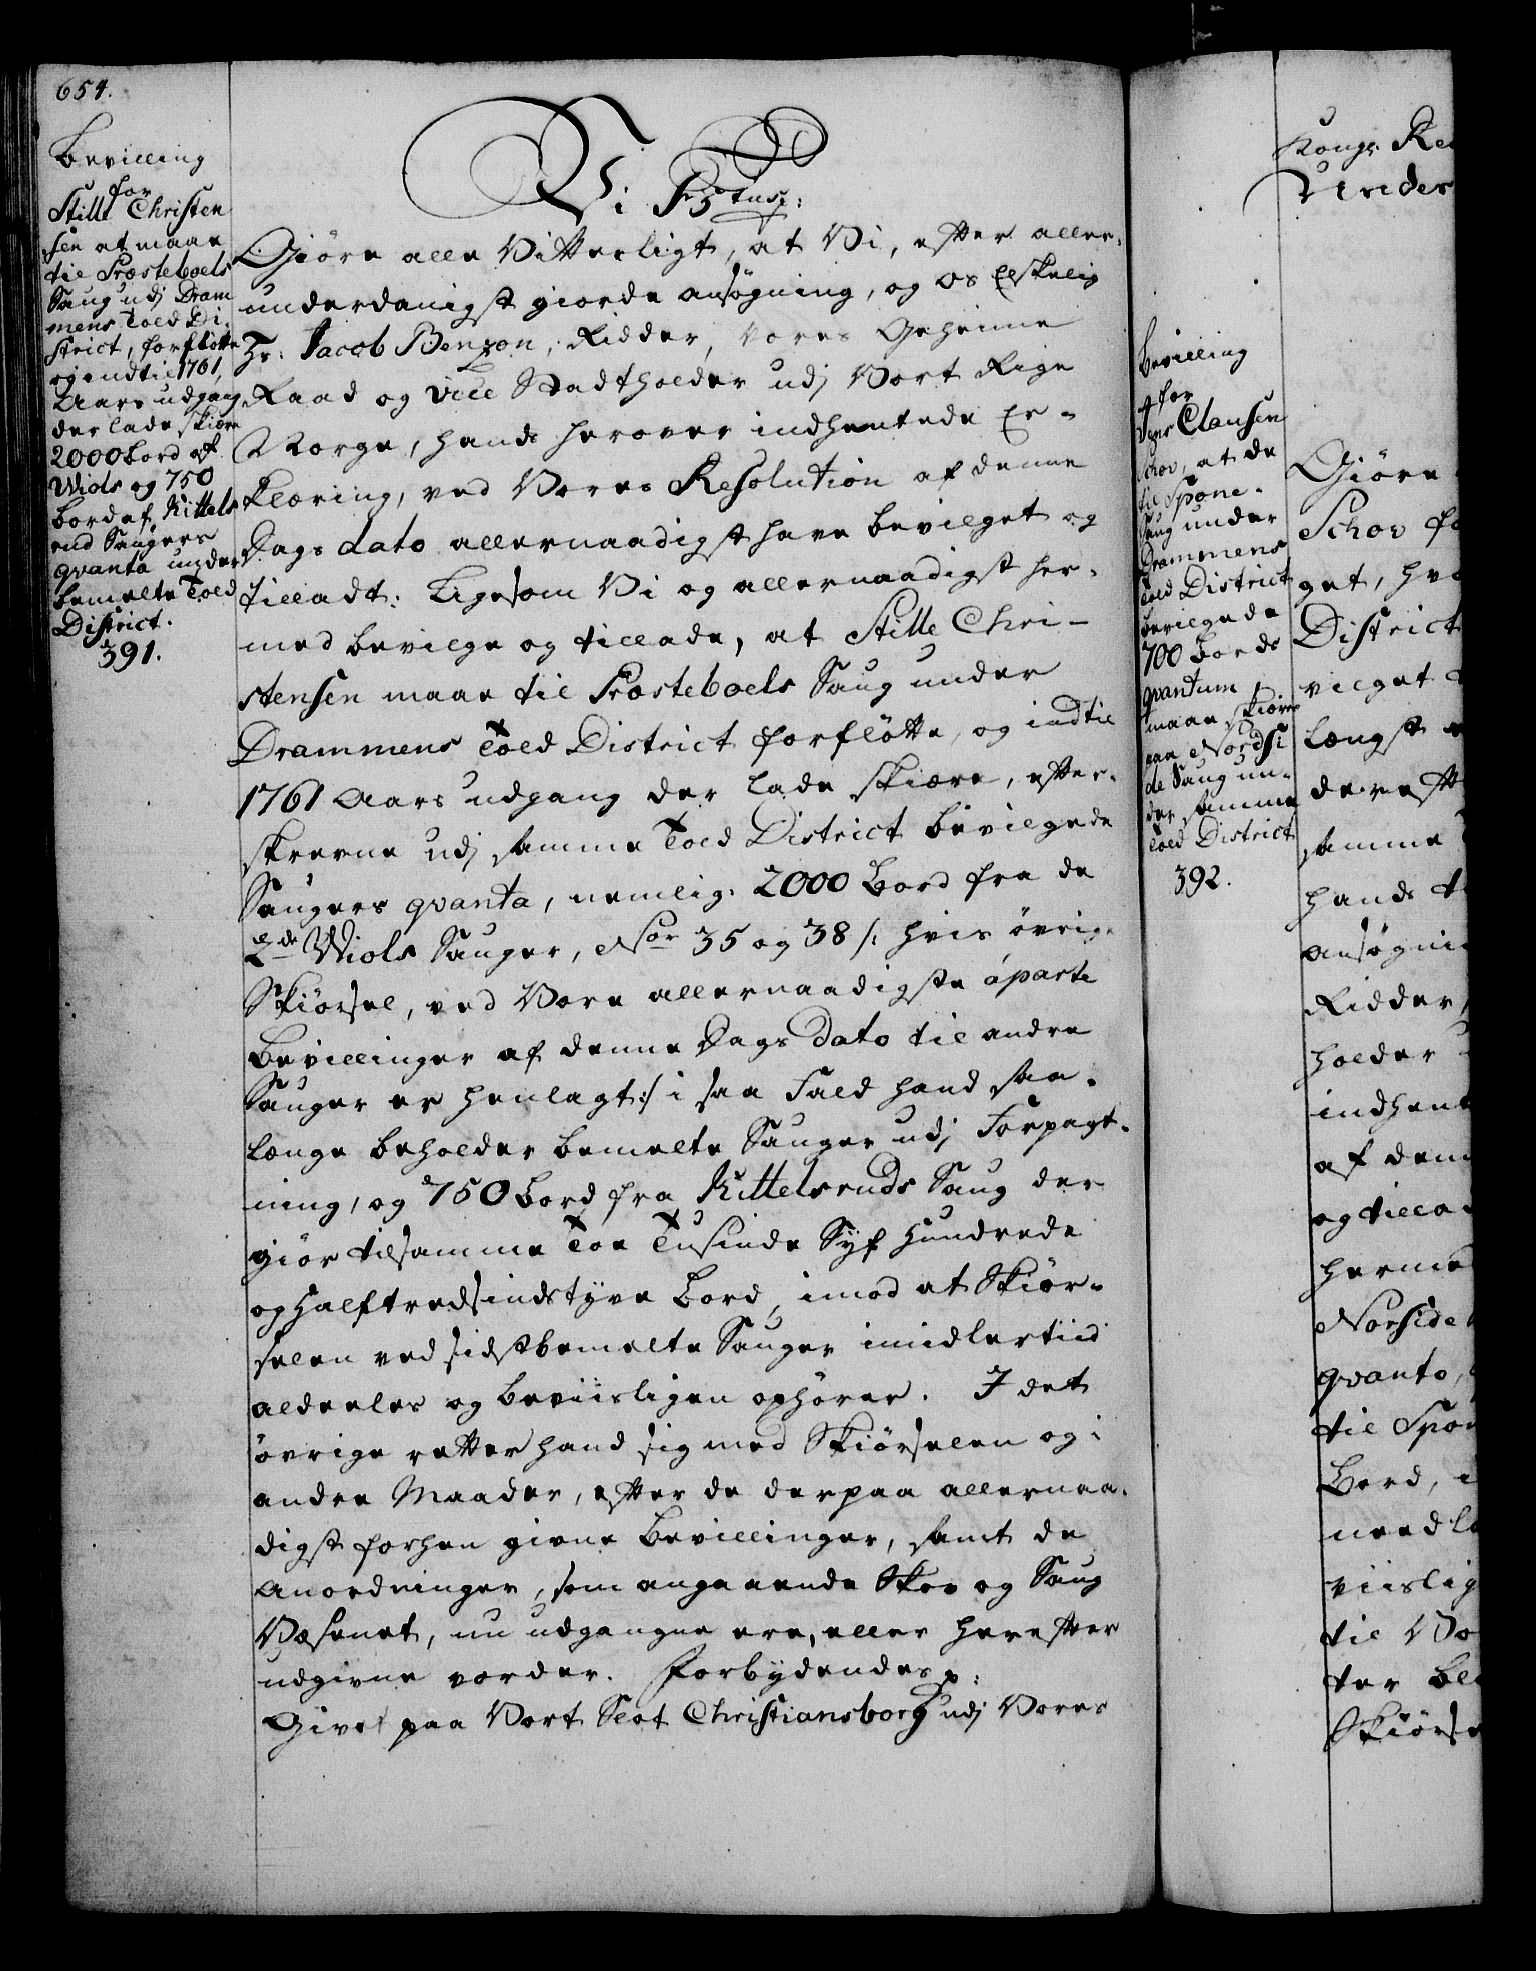 654.
Bevilling
for
Stille Christen
sen at maae
til Præsteboels
Saug udj Dram
mens Told Di-
strict, forflötte
og indtil 1761,
Aars udgang
der lade skiære
2000 Bord af
Wiols og 750
Bord af Kittels
rud Saugers
qvanta under
bemelte Told
District.
391.
Vi Fr. 5tus p:
Giöre alle Vitterligt, at Vi, efter aller-
underdanigst giorde ansøgning, og os Elskelig
Hr: Jacob Benzon, Ridder, Vores Geheime
Raad og Vice Stadtholder udj Vort Rige
Norge, hands herover indhentede Er-
klæring, ved Vores Resolution af denne
Dags dato allernaadigst have bevilget og
tilladt: Ligesom Vi og allernaadigst her-
med bevilge og tillade, at Stille Chri-
stensen maae til Præsteboels Saug under
Drammens Told District forflötte, og indtil
1761 Aars udgang der lade skiære, efter-
skrevne udj samme Told District bevilgede
Saugers qvanta, nemlig: 2000 Bord fra de
2de Wiols Sauger, Nor 35 og 38 /: hvis övrige
Skiörsel, ved Vore allernaadigste áparte
Bevillinger af denne Dags Dato til andre
Sauger er henlagt :/ i saa Fald hand saa-
længe beholder bemelte Sauger udj Forpagt-
ning, og 750 Bord fra Kittelsruds Saug der
giör tilsamme Toe Tusinde Syf Hundrede
og Halftredsindstyve Bord, imod at Skiör-
selen ved sidstbemelte Sauger imidlertiid
aldeeles og beviisligen ophörer. I det
övrige retter hand sig med Skiörselen og i
andre Maader, efter de derpaa allernaa-
digst forhen givne Bevillinger, samt de
Anordninger, som angaaende Skov og Saug
Væsenet, nu udgangne ere, eller herefter
udgivne vorder. Forbydendes p:
Givet paa Vort Slot Christiansborg udj Vores
Bevilling
for
Clausen
Schov, at de
til Spone-
Saug under
Drammens
Told District
bevilgede
700 Bords
qvantum
maae skiæres
paa Nordsi
de Saug un-
der samme
Told District
392.
Kongl: Re
Under
Giöre
Schov fo
get, hvo
District
vilget
længst
derefte
samme
hands
ansøgni
Ridder,
holder
indhent
af denn
og tilla
hermed
Norside
qvanto,
til Spon
Bord, i
need l
viislig
til Vo
ter bl
Skiörse